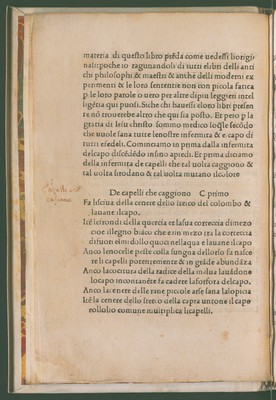 materia di questo libro preda come uedesti liorigi
nali: poche io ragunandosi di tutti elibri delli anti
chi philosophi & maestri & anche delli moderni ex
perimenti & le loro sententie non con picola fatica
p le loro parole o uero per altre di piu leggieri intel
ligetia qui puosi. Siche chi hauessi eloro libri presen
te nō trouerebe altro che qui sia posto. Et pero p la
gratia di Iesu christo sommo medico
che uuole sana tutte lenostre infermita & e capo di
tutti efedeli. Cominciamo in prima dalla infermita
delcapo discēdēdo insino apiedi. Et prima diciamo
della infermita de capelli che tal uolta caggiono &
tal uolta sirodano & tal uolta mutano ilcolore
De capelli che caggiono C. primo
Fa la cenere dello sterco del colombo &
lauane ilcapo.
Itē le frondi della quercia et la sua correccia di mezo
cioe illegno biāco che e in mezo tra la correccia
di fuori el midollo quoci nellaqua e lauane il capo
Anco lenocelle peste colla sungna dellorso fa nasce
re li capelli potentemente & in grāde abundāza
Anco lacocitura della radice della malua lauādone
loco incontanēte fa cadere la forfora delcapo.
Anco la cenere delle rane piccole arse sana lalopicia
Itē la cenere dello sterco della capra untone il capo
collolio comune multiplica li capelli.